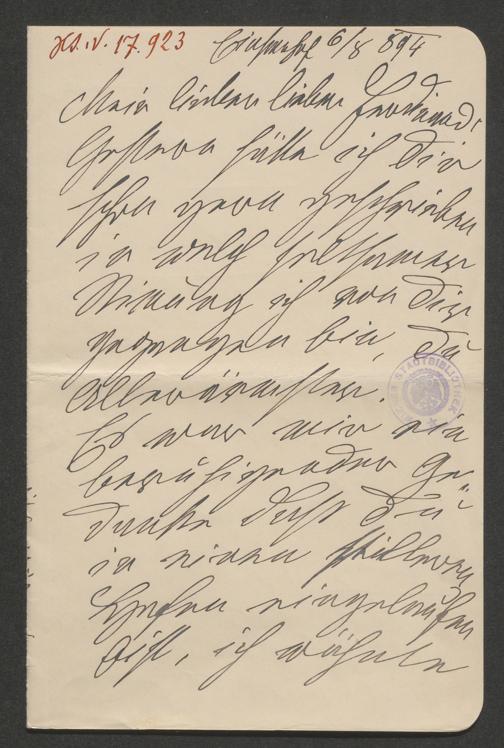 HS. N. 17.923
6/8 894
Mein lieber lieber Ferdinand!
Gestern hätte ich Dir
schon gern geschrieben
in welch seltsamer
Stimmung ich von Dir
gegangen bin, Du
Allerärmster.
Es war mir ein
beruhigender Ge-
danke daß Du
in einen stilleren
Hafen eingelaufen
bist, ich wähnte
STADTBIBLIOTHEK